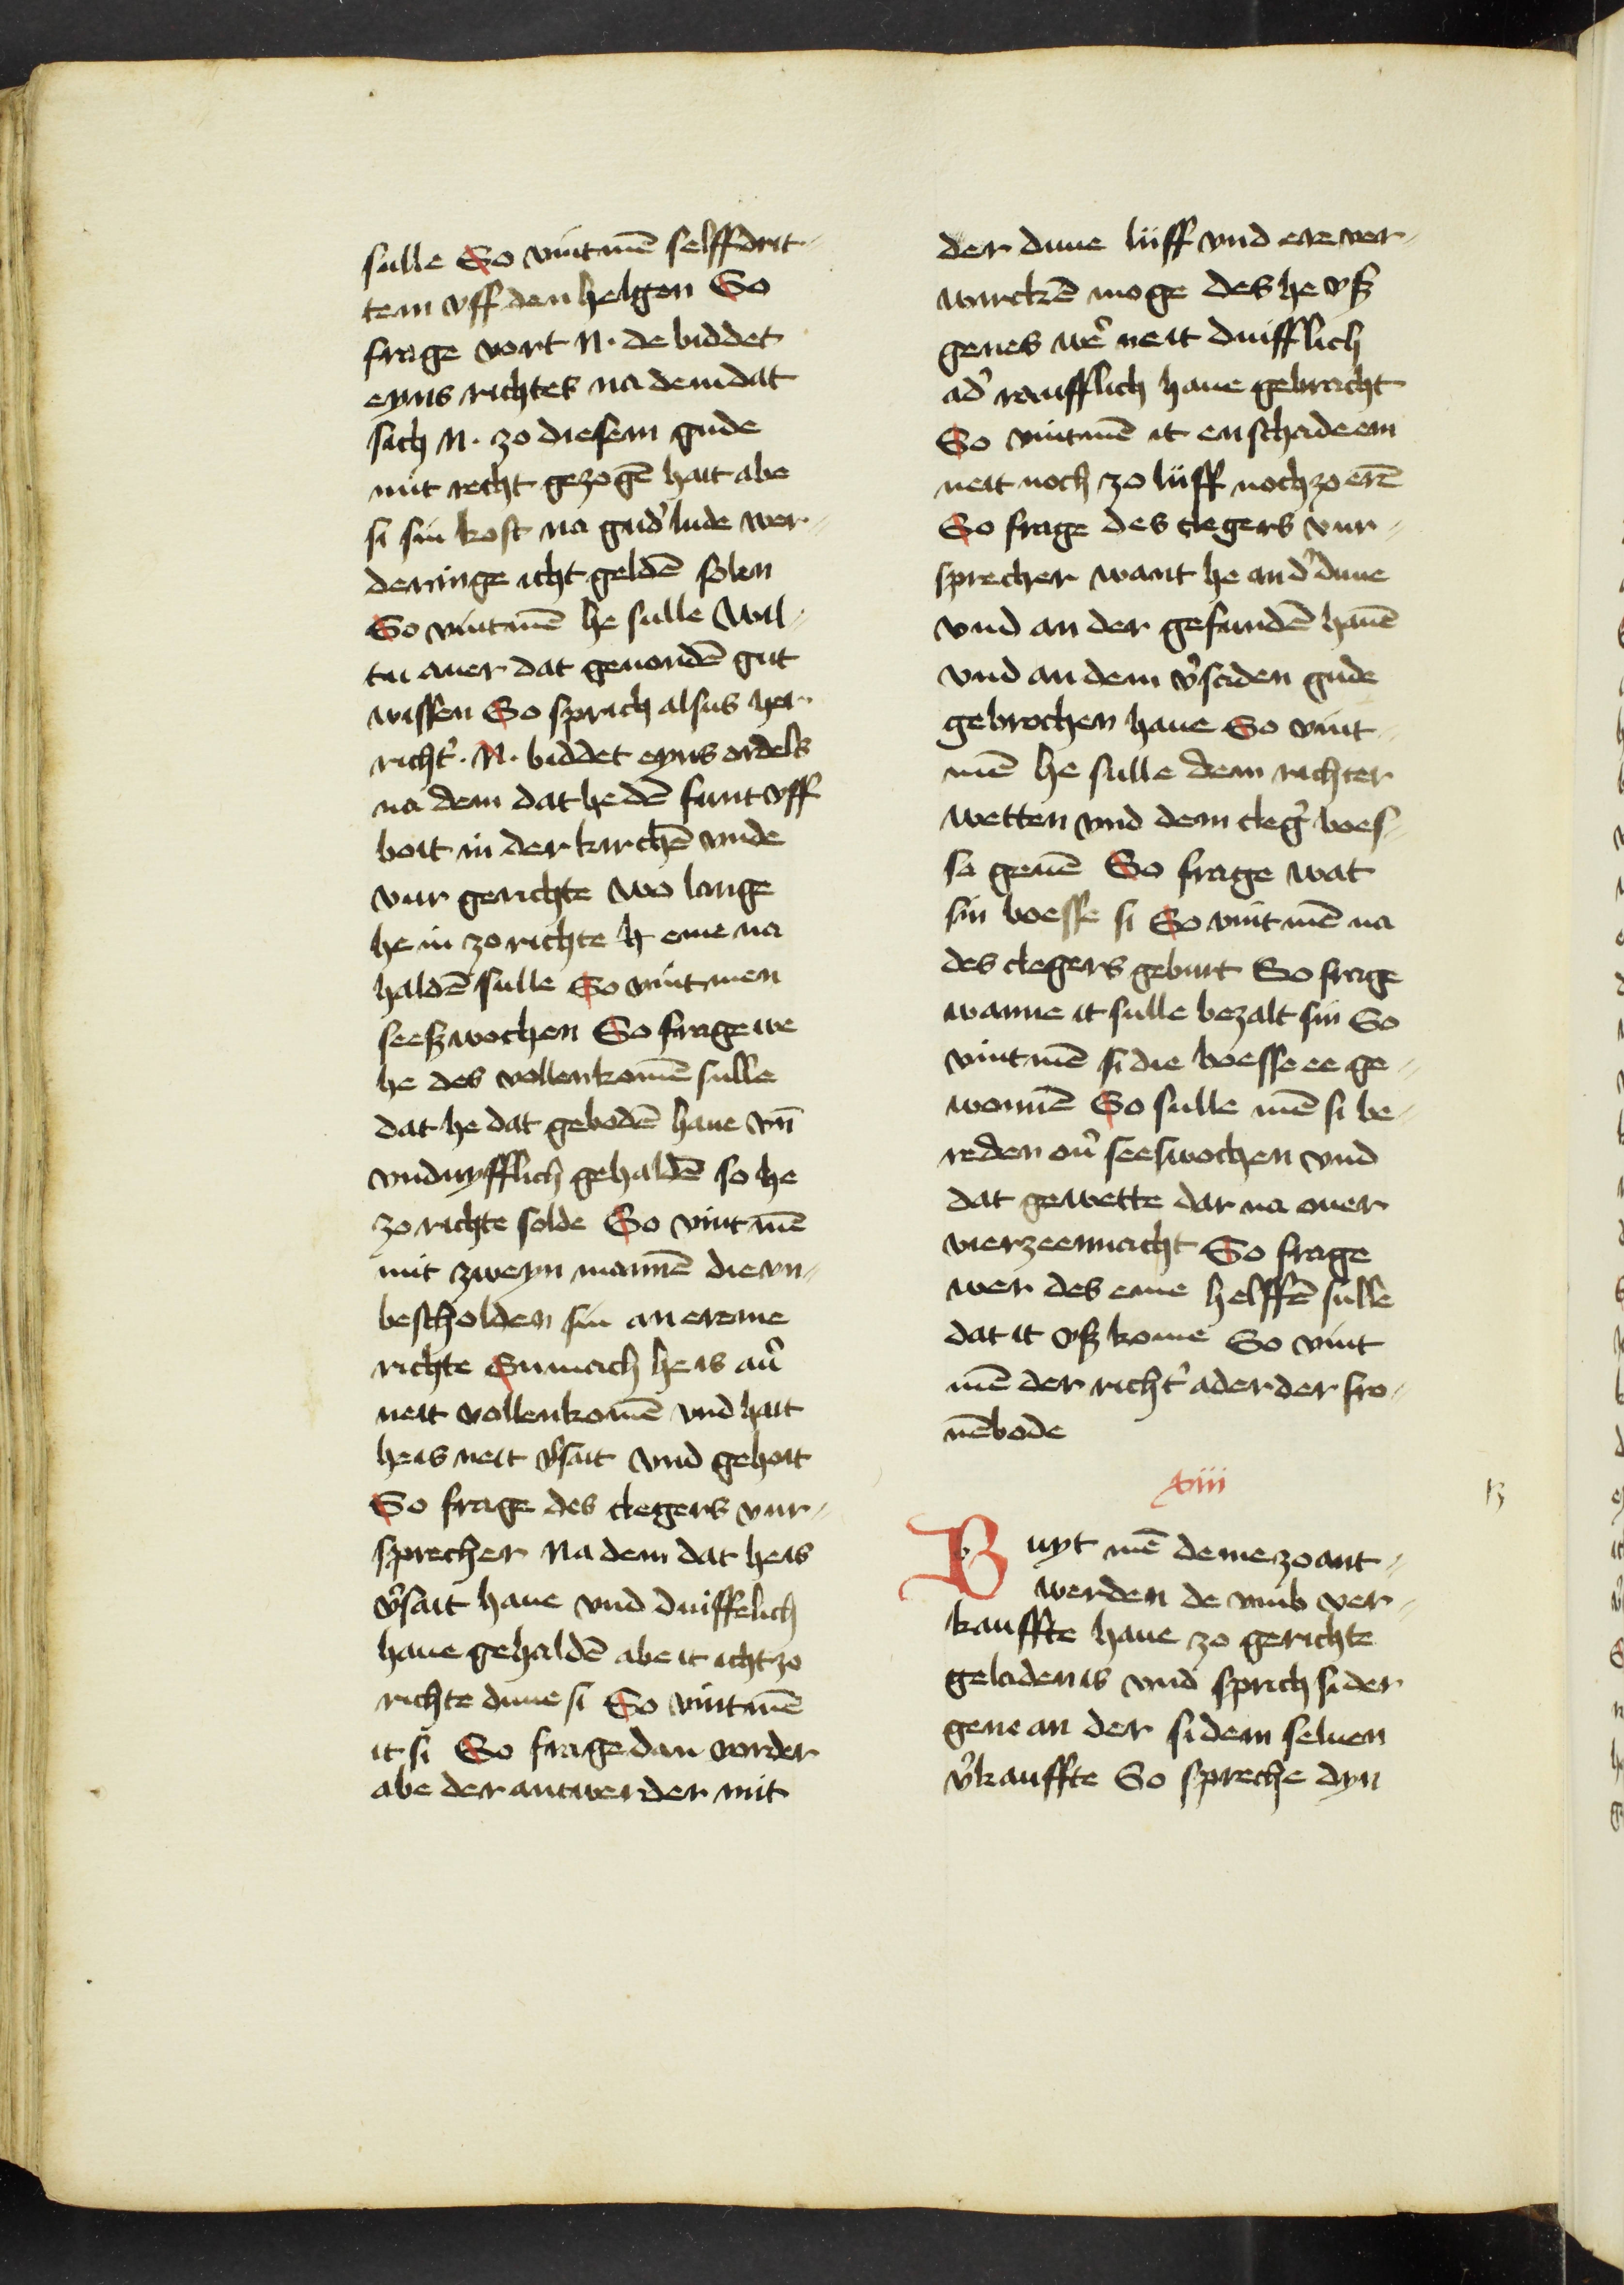 sulle So vint mē selffdrit-
tem vff den helgen So
frage vort N. de biddet
eyns richtes na dem dat
sich N. zo diesem gude
mit recht gezogē hait abe
si sin kost na gud' lude wer-
deringe icht geldē solen
So vint mē he sulle Wil-
tu auer dat gevondē gut
wissen So sprich alsus her
richt'. N. biddet eyns ordels
na dem dat he dē funt vff
boit in der kirchē vnde
vur gerichte wo lange
he in zo richte h eme na
haldē sulle So vint men
seeß wochen So frage we
he des vollenkomē sulle
dat he dat gebodē haue vn̄
vnduyfflich gehaldē so he
zo richte solde So vint mē
mit zweyn mannē die vn-
bescholden sin an ereme
richte Enmach he is au'
neit vollenkomē vnd hait
he is neit v'sait vnd gehoit
So frage des clegers vur-
sprecher Na dem dat he is
v'sait haue vnd duiffelich
haue gehaldē abe it icht zo
richte duue si So vint mē
it si So frage dan vorder
abe der antwerder mit
der duue lüff vnd ere ver-
wirckē moge des he vß
genes we' neit duifflich
ad' roufflich haue gebracht
So vint mē it enschade em
neit noch zo lüff noch zo erē
So frage des clegers vur-
sprecher want he an d' duue
vnd an der gefundē hauē
vnd an dem v'saiden gude
gebrochen haue So vint
mē he sulle dem richter
wetten vnd dem cleg' boes-
sa geuē So frage wat
sin boesse si So vint mē na
des clegers geburt So frage
wanne it sulle bezalt sin So
vint mē si die boesse ee ge-
wonnē So sulle mē si be-
reden ou' sees wochen vnd
dat gewette dar na ouer
vierzeennacht So frage
wer des eme helffē sulle
dat it vß kome So vint
mē der richt' ader der fro-
nēbode
xiii
13
Buyt mē deme zo ant-
werden de vmb ver-
kauffte haue zo gerichte
geladen is vnd sprich si der
gene an der si dem seluen
v'kauffte So spreche dyn